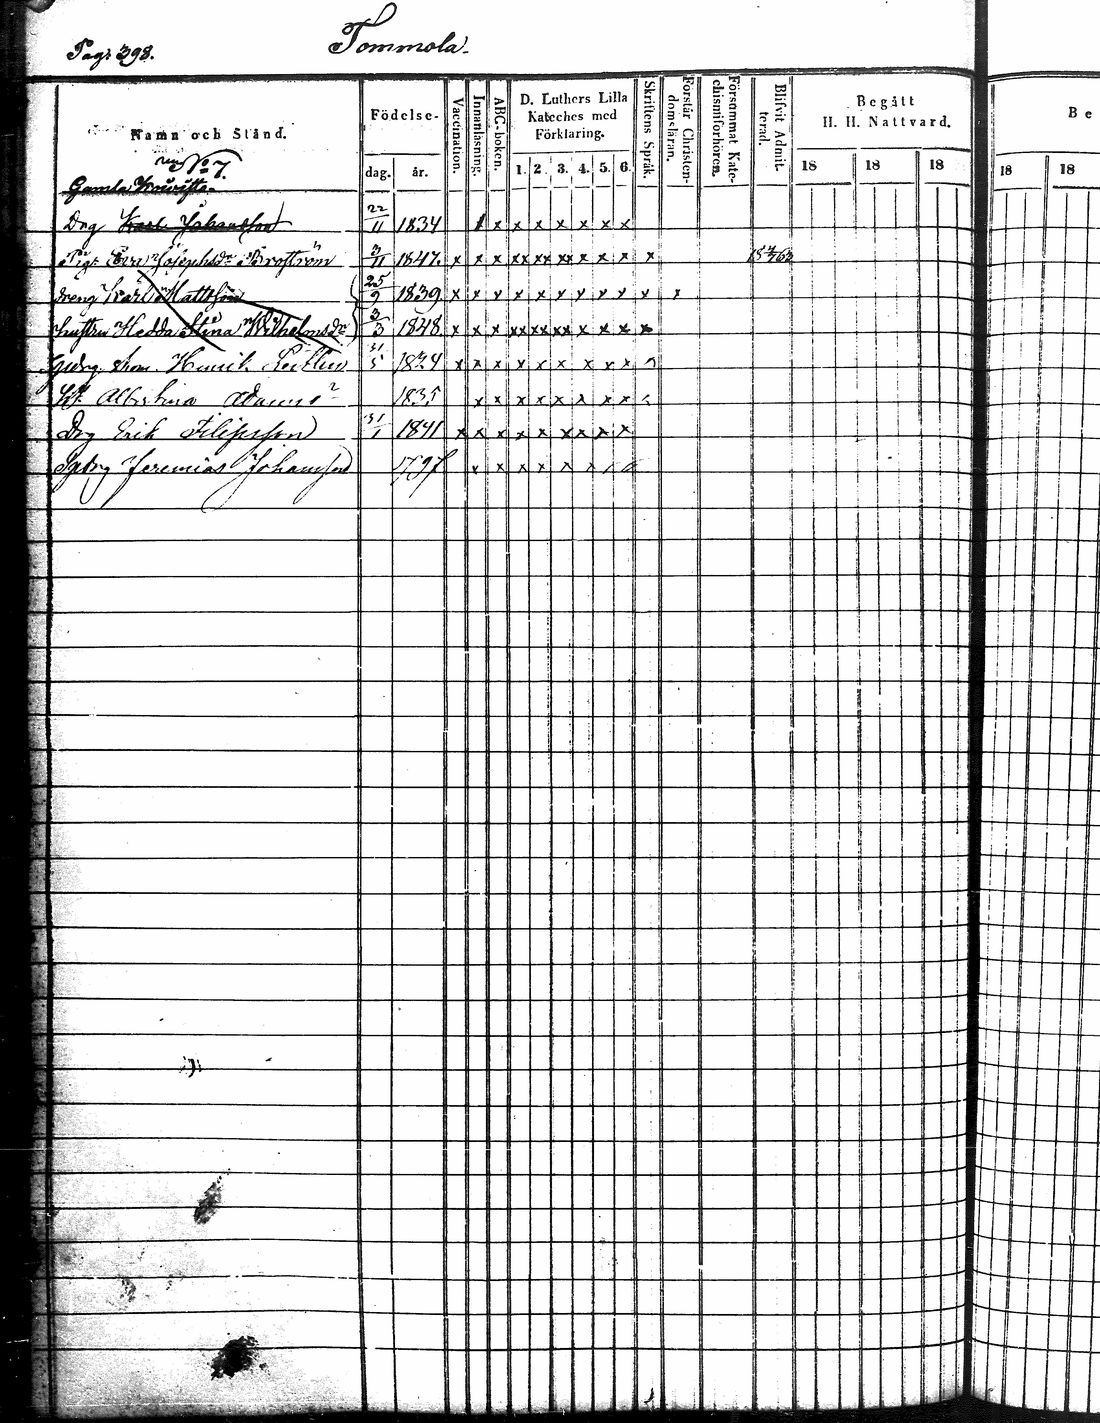 Pag: 398.
Tommola.
Namn och Stånd.
Födelse-
dag.
år.
Vaccination.
Innanläsning.
ABC-boken.
D. Luthers Lilla
Kateches med
Förklaring.
1. 2. 3. 4. 5. 6.
Skriftens Språk.
Förstår Christen-
domsläran.
Försummat Kate-
chismiförhören.
Blifvit Admit-
terad.
Begått
H. H. Nattvard.
18 18 18
Be
18 18
No 7.
Gamla
Drg Karl Johansson 22/11 1834 x x x x x x x
Pig. Eva Josephsdr 3/11 1847. x x x xx xx xx x x x x
Dreng Karl Mattsson 25/9 1839 x x x x x x x x x x x
Hustru Hedda Stina Wilhelmsdr 3/3 1848 x x x xx xx xx x x x x
Henrik 31/5 1834 x x x x x x x x x
Albertina 1835 x x x x x x x x
Drg Erik Filipsson 31/1 1841 x x x x x x x x x
Jeremias Johansson 1797 x x x x x x